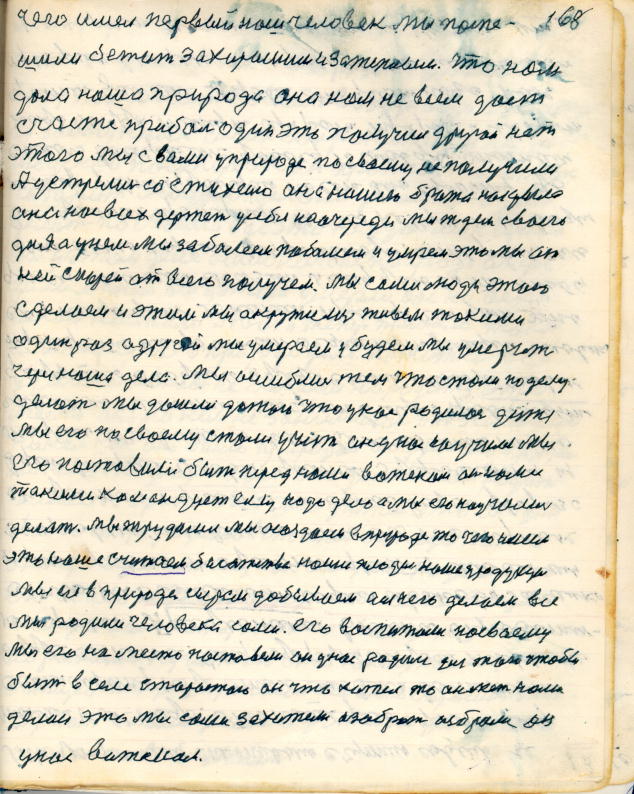 чего имел первый наш человек мы поспе- 168
шили бежат захоранили и затеповем. Что нам
дала наша природа она нам не всем дает
счасте прибал один эть получил другой нет
этого мы с вами у природе по своему не получили
А устрелис со стихею она нашего брата накрыла
она на всех держет у себя на очереди мы ждем своего
дня а у нем мы заболеем поболеем и умрем это мы от
ней скорей от всего получем. мы сами люди этого
сделаем и этим мы окружились живем такими
один раз а другой мы умераем и будем мы умерат
через наше дело. мы ошиблис тем что стали по делу
делат мы дошли до того что у нас родилос дитя
мы его по своему стали учит он у нас научился мы
его поставили быт перед нами вожеком он нами
такими командует ему надо дело а мы его научились
делат. мы трудилис мы создали в природе то чего имели
это наше считаем богатства наши плоды наше продукция
мы ее в природе сырем добываем а из него делаем все
мы родили человека сами. его воспитали по своему
мы его на место поставели он у нас родилс для того чтобы
быт в селе старостою он что хотел то он над нами
делал это мы сами захотели избрат избрали он
у нас вожекам.